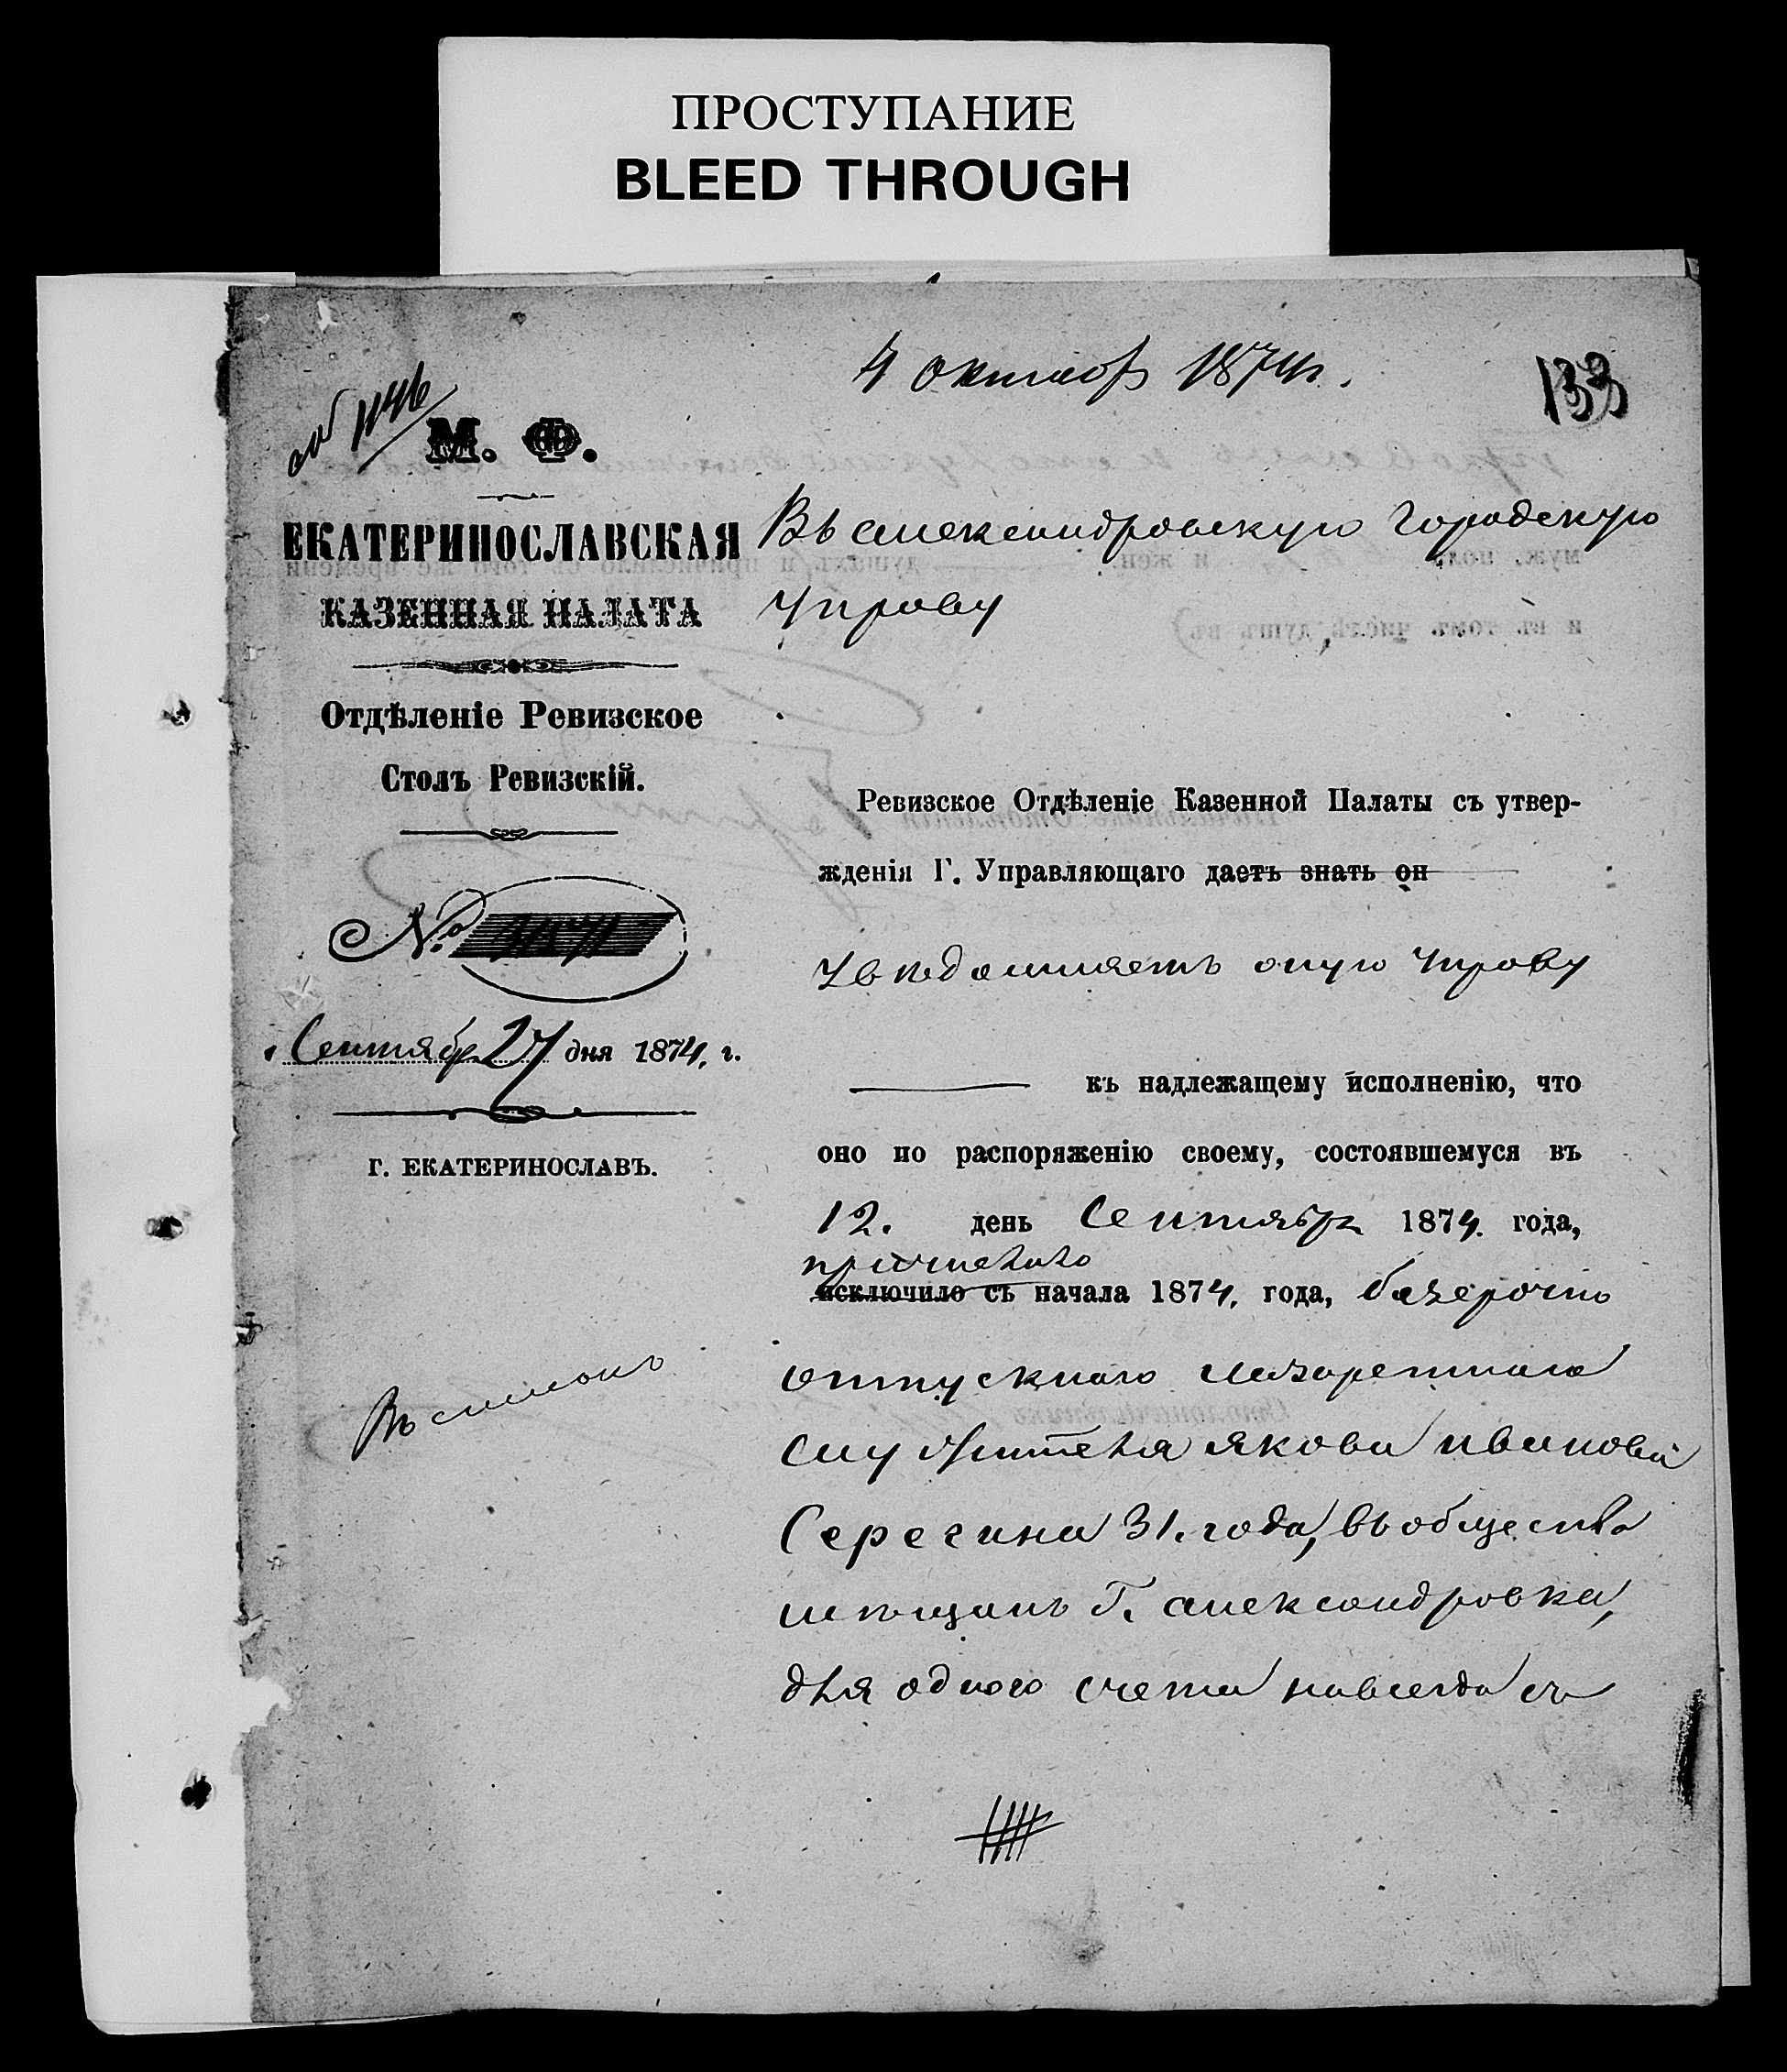 ПРОСТУПАНИЕ
BLEED THROUGH
4 октябр 1874 г.
133
1146
М. Ф.
ЕКАТЕРИНОСЛАВСКАЯ
КАЗЕННАЯ ПАЛАТА
Отдѣленіе Ревизское
Столъ Ревизскій.
№
Сентября 27 дня 1874, г.
Г. ЕКАТЕРИНОСЛАВЪ.
Въ списокъ
Въ Александровскую Городскую
Управу
Ревизское Отдѣленіе Казенной Палаты съ утвер-
жденія Г. Управляющаго даетъ знать он
Увѣдомляетъ оную Управу
къ надлежащему исполненію, что
оно по распоряженію своему, состоявшемуся въ
12. день Сентября 1874. года,
причислило
исключило съ начала 1874, года, безсрочно
отпускнаго лазаретнаго
служителя Якова Иванова
Серегина 31. года, въ общество
мѣщанъ Г. Александровка,
для одного счета навсегда съ